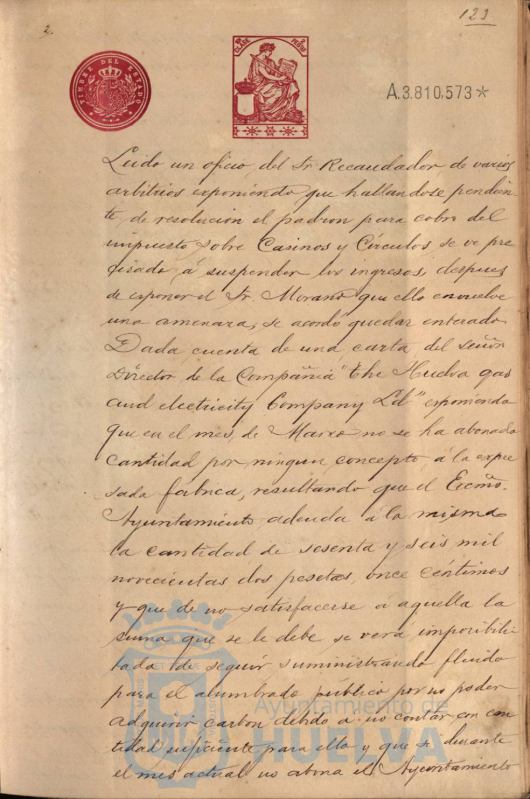 2.
123
TIMBRE DEL ESTADO
CLASE
A.3.810.573*
Leido un oficio, del Sr Recaudador, de varios
arbitrios exponiendo que hallandose pendien
te, de resolucion el padron para cobro del
impuesto sobre Casinos y Circulos se ve pre
cisado á suspender los ingresos, despues
de exponer el Sr. Morano que ello envuelve
una amenaza, se acordó quedar enterado.
Dada cuenta de una carta, del señor
Director de la Compañia "The Huelva gas
and electricity Company Ld" exponiendo
que en el mes, de Marzo no se ha abonado
cantidad por ningun concepto á la expre
sada fábrica, resultando que el Excmo.
Ayuntamiento adeuda á la misma
la cantidad de sesenta y seis mil
novecientas dos pesetas, once céntimos
y que de no satisfacerse á aquella la
suma que se le debe, se verá imposibili
tada de seguir suministrando fluido
para el alumbrado público por no poder
adquirir carbon debido a no contar con can
tidad suficiente para ello y que si durante
el mes actual no abona el Ayuntamiento
Ayuntamiento de
HUELVA